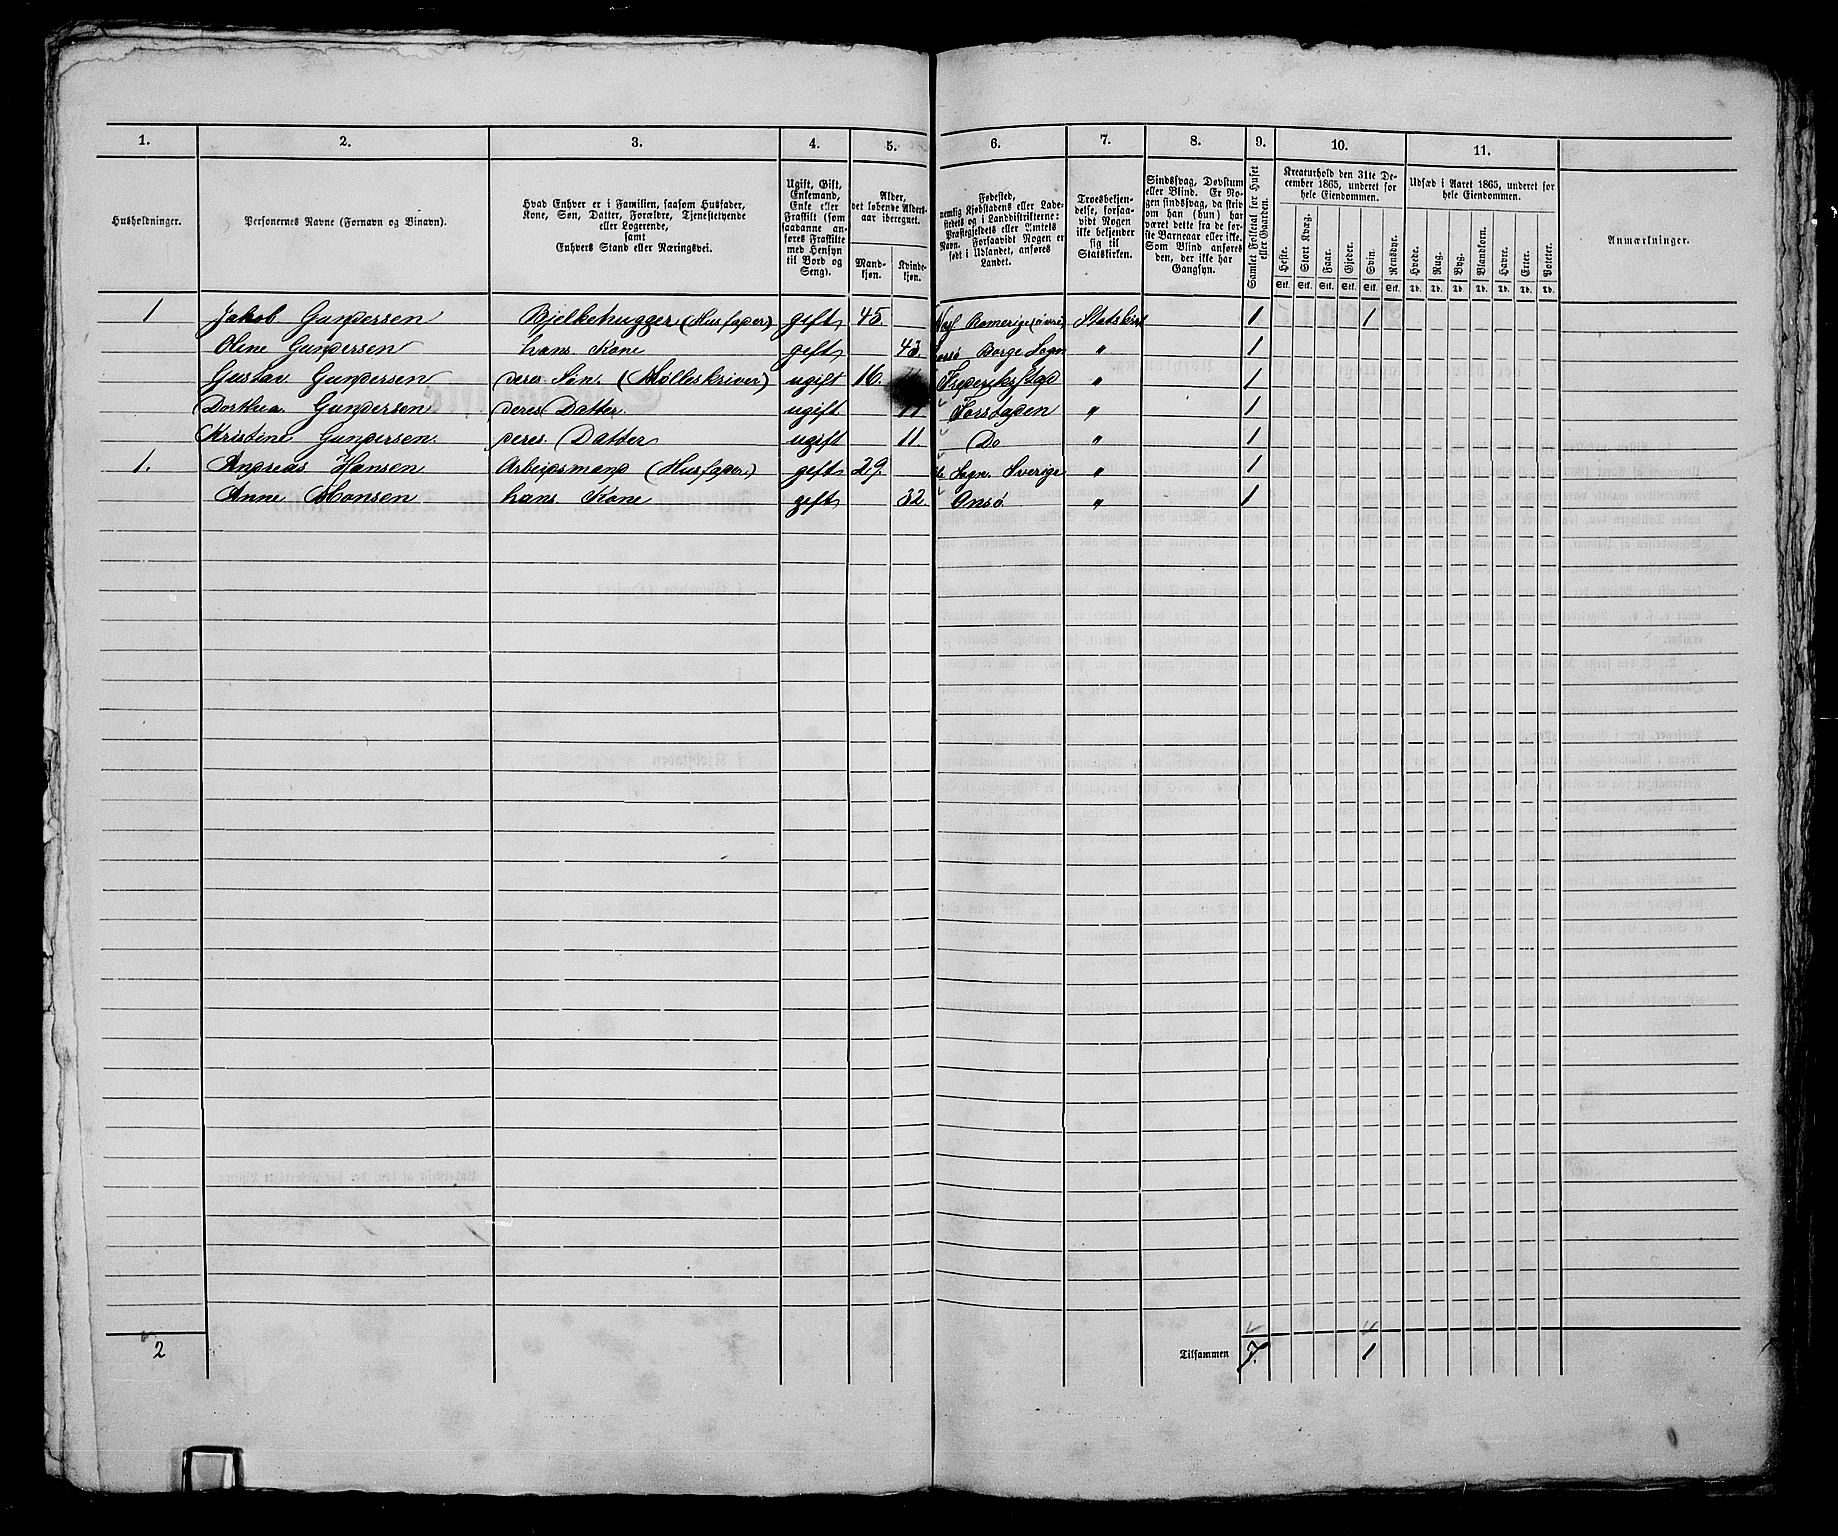 1. 2. 3. 4. 5. 6. 7. 8. 9. 10. 11.
Husholdninger.
Personernes Navne (Fornavn og Binavn).
Hvad Enhver er i Familien, saasom Husfader,
Kone, Søn, Datter, Forældre, Tjenestetyende
eller Logerende,
samt
Enhvers Stand eller Næringsvei.
Ugift, Gift,
Enkemand,
Enke eller
Fraskilt (som
saadanne an-
føres Fraskilte
med Hensyn
til Bord og
Seng).
Alder,
det løbende Alders-
aar iberegnet.
Mand-
kjøn.
Kvinde-
kjøn.
Fødested,
nemlig Kjøbstadens eller Lade-
stedets og i Landdistrikterne:
Præstegjeldets eller Amtets
Navn. Forsaavidt Nogen er
født i Udlandet, anføres
Landet.
Troesbekjen-
delse, forsaa-
vidt Nogen
ikke bekjender
sig til
Statskirken.
Sindssvag, Døvstum
eller Blind. Er No-
gen sindssvag, da skriv
om han (hun) har
været dette fra de før-
ste Barneaar eller ikke.
Som Blind anføres
den, der ikke har
Gangsyn.
Samlet Folketal for Huset
eller Gaarden.
Kreaturhold den 31te De-
cember 1865, underet for
hele Eiendommen.
Heste. Stort Kvæg. Faar. Gjeder. Svin. Rensdyr.
Stk. Stk. Stk. Stk. Stk. Stk.
Udsæd i Aaret 1865, underet for
hele Eiendommen.
Hvede. Rug. Byg. Blandkorn. Havre. Erter. Poteter.
Td. Td. Td. Td. Td. Td. Td.
Anmærkninger.
1 Jakob Gundersen Bjelkehugger (Husfader) gift 45. Romerige (øvre) Statskirk 1 1
Oline Gundersen hans Kone gift 43. Borge Sogn " 1
Gustav Gundersen deres Søn. (Mølleskriver) ugift 16. Frederikstad " 1
Dorthea Gundersen deres Datter. ugift 11 Forstaden " 1
Kristine Gundersen. deres Datter ugift 11. Do " 1
1. Andreas Hansen Arbeidsmand (Husfader.) gift 29. Sogn. Sverige " 1
Anne Monsen hans Kone gift 32. Onsø. " 1
2 Tilsammen 7. 1